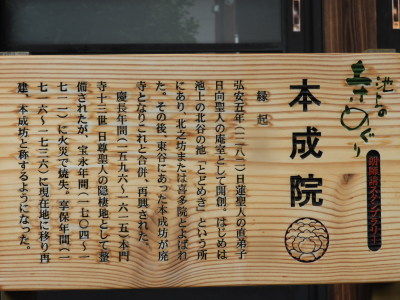 池上の
寺めぐり
題目堂スタンプラリー
本成院
縁起
弘安五年(一二八二)日蓮聖人の直弟子
日向聖人の庵室として開創。はじめは
池上の北谷の地「とどめき」という所
にあり、北之坊または喜多院とよばれ
た。その後、東谷にあった本成坊が廃
寺となりこれと合併、再興された。
慶長年間(一五九六~一六一五)本門
寺十三世 日尊聖人の隠棲地として整
備されたが、宝永年間(一七〇四~一
七一一)に火災で焼失。享保年間(一
七一六~一七三六)に現在地に移り再
建、本成坊と称するようになった。